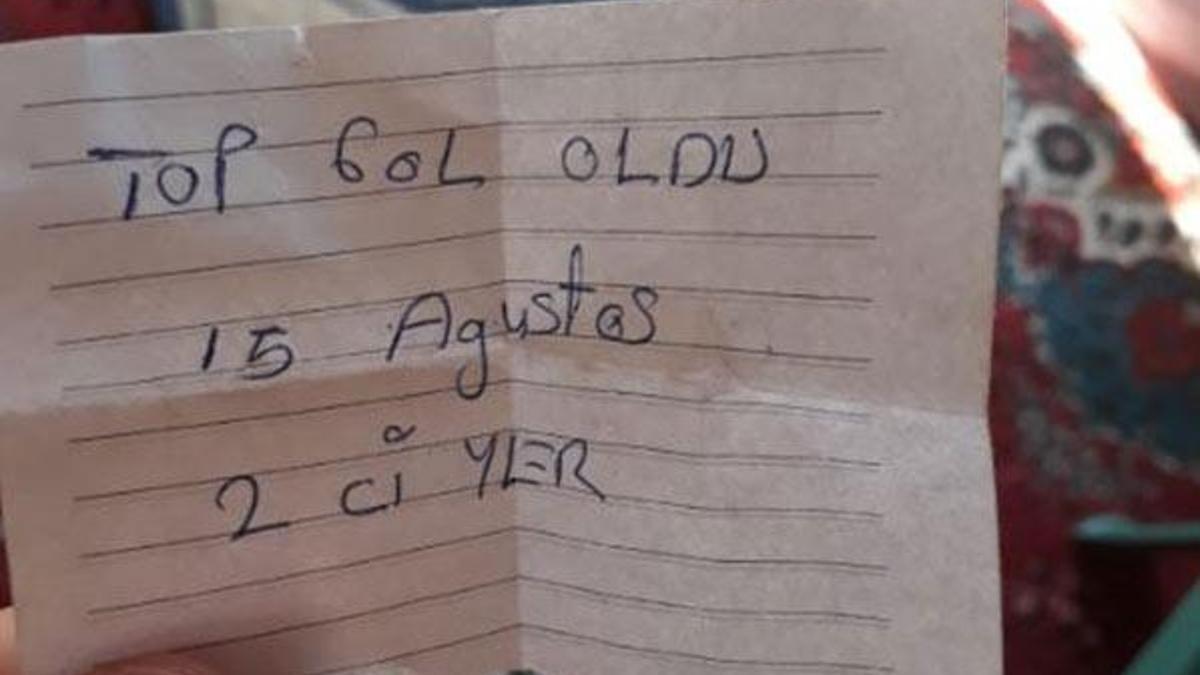 TOP GOL OLDU
15 Agustos
2 ci YER